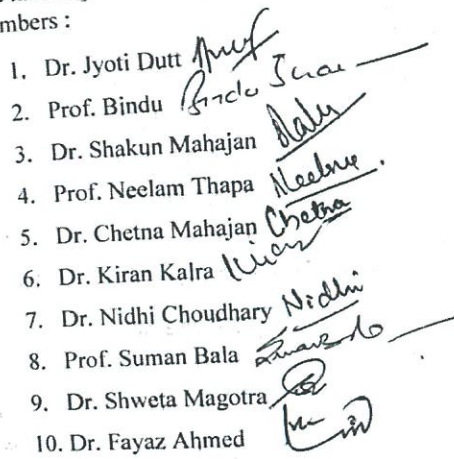 mbers :
1. Dr. Jyoti Dutt
2. Prof. Bindu Bindu
3. Dr. Shakun Mahajan
4. Prof. Neelam Thapa Neelam
5. Dr. Chetna Mahajan Chetna
6. Dr. Kiran Kalra Kiran
7. Dr. Nidhi Choudhary Nidhi
8. Prof. Suman Bala
9. Dr. Shweta Magotra
10. Dr. Fayaz Ahmed